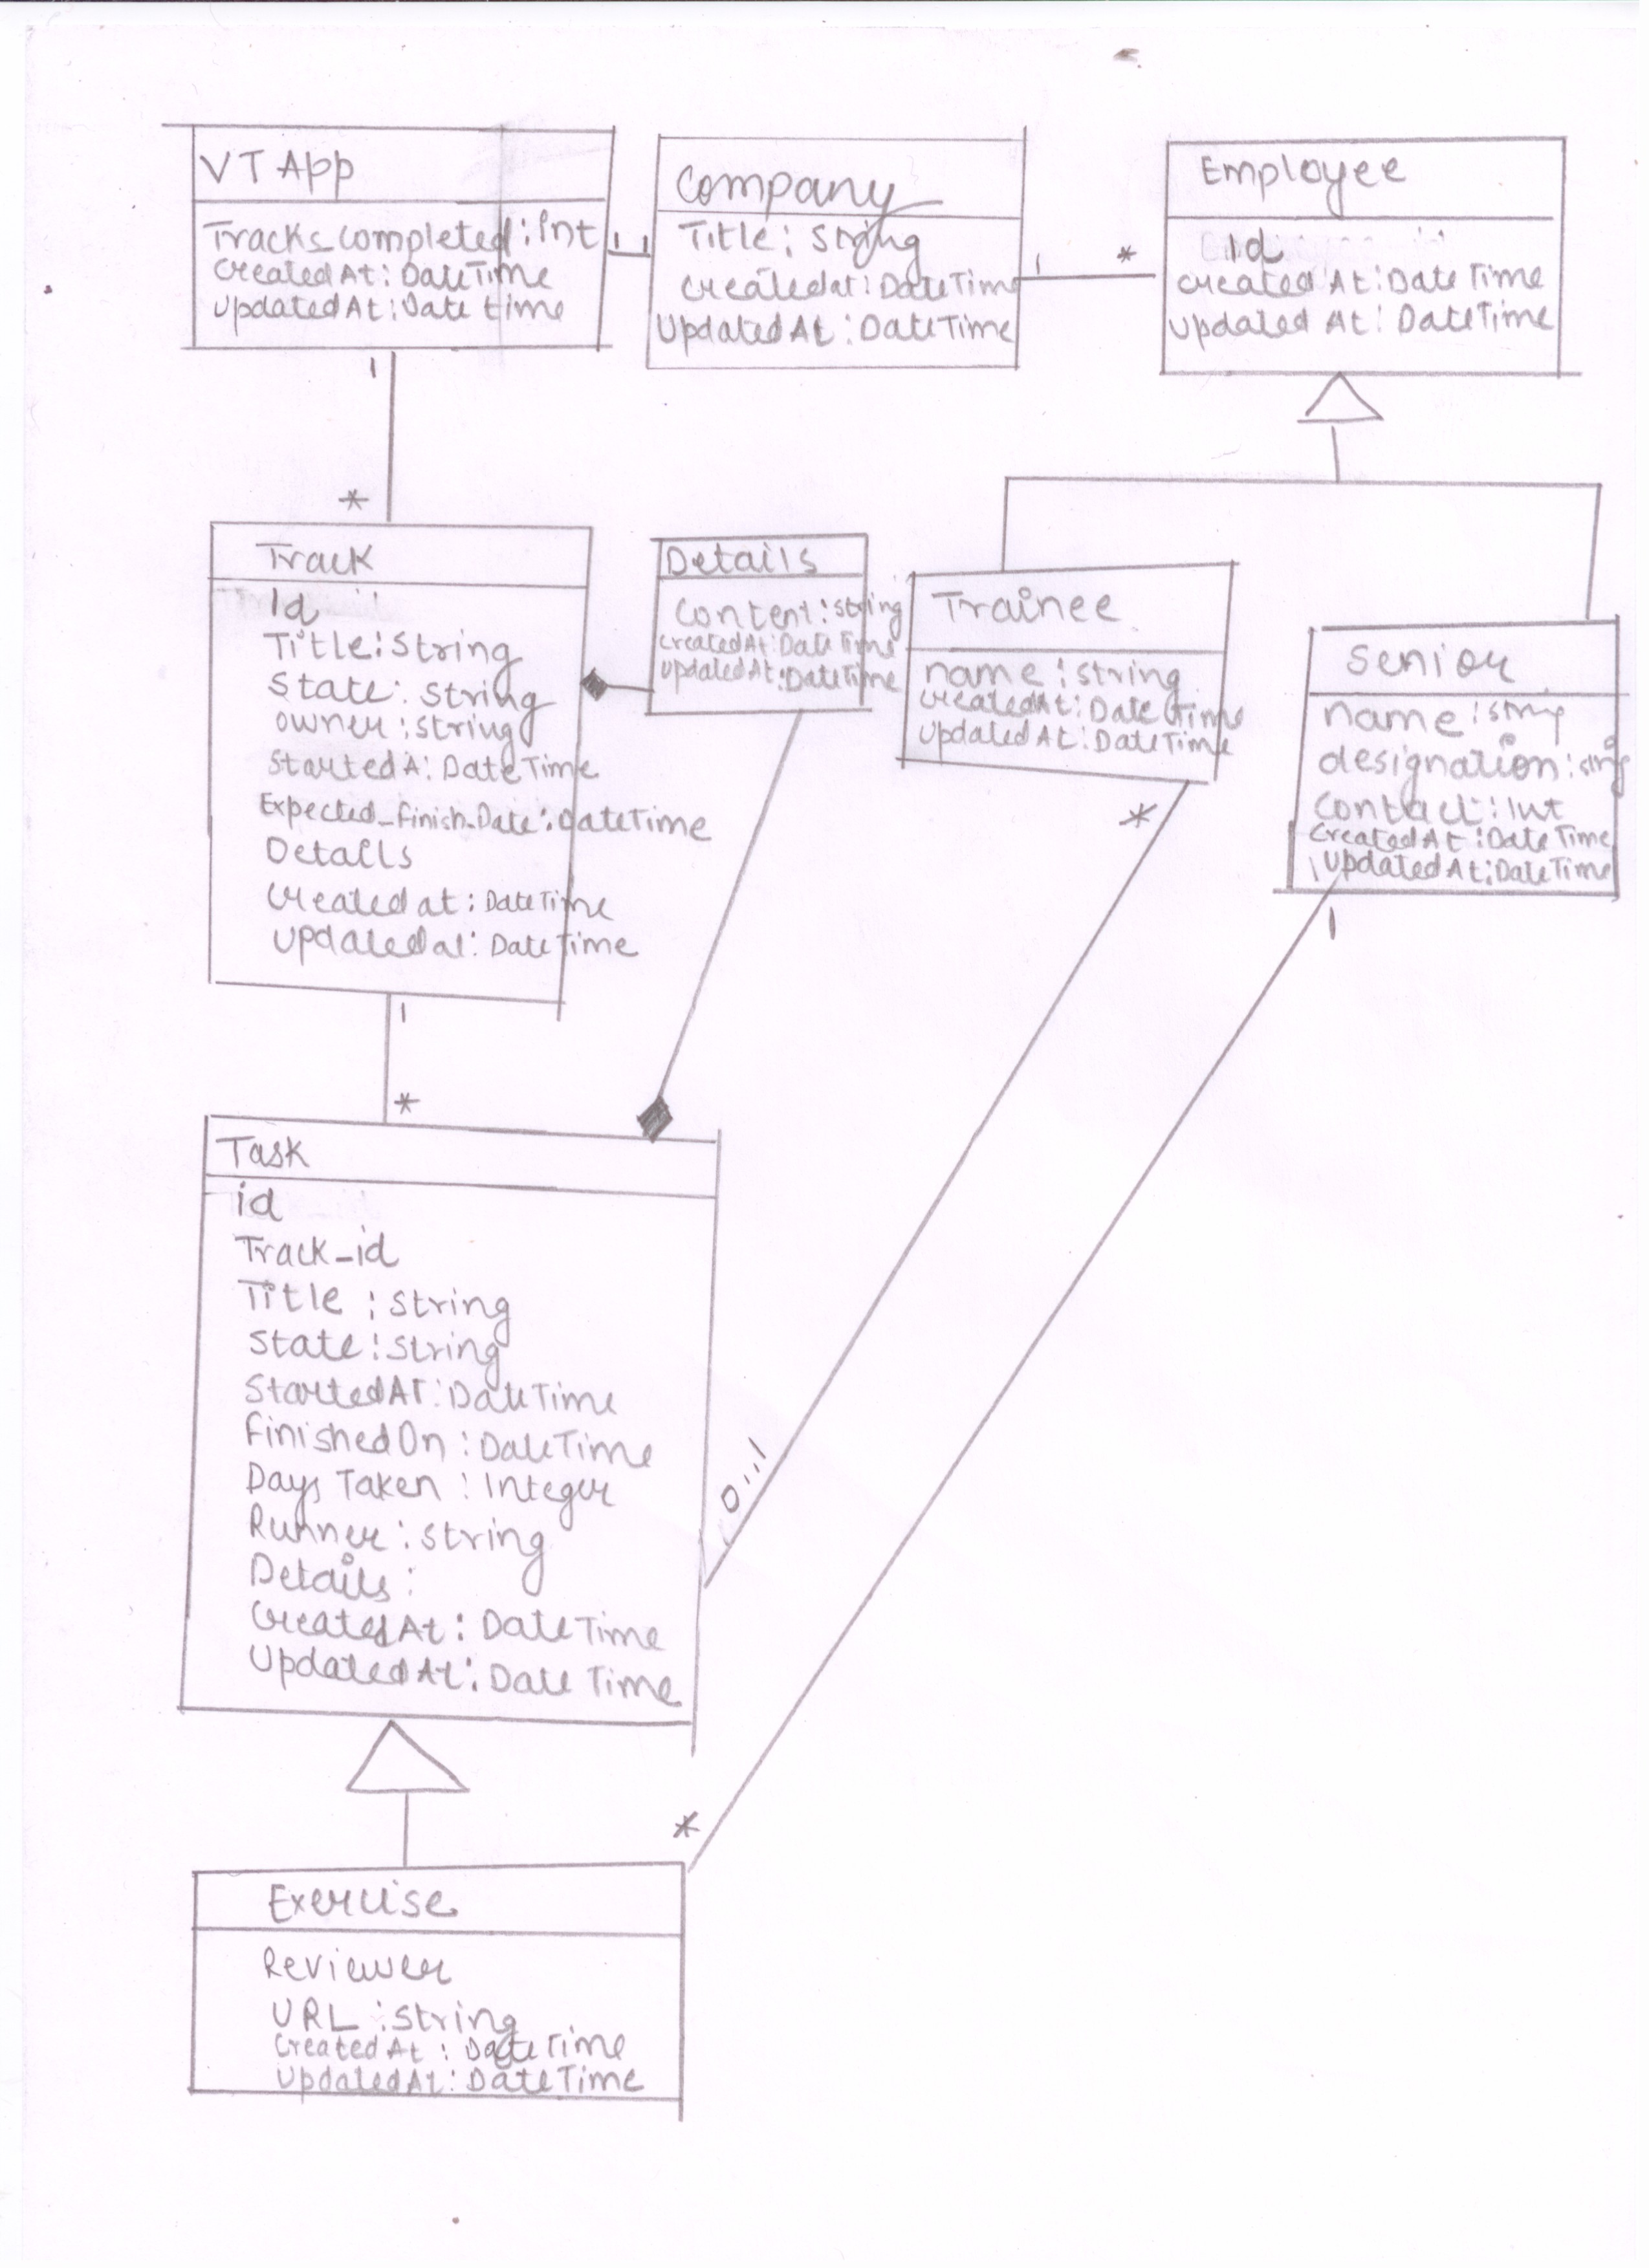 VT App
Tracks_completed : Int
CreatedAt : DateTime
UpdatedAt : Date time
1
1
Company
Title : String
Createdat : DateTime
UpdatedAt : DateTime
1
*
Employee
Id
Created At : DateTime
Updated At : DateTime
1
*
Track
Id
Title : String
State : String
owner : String
StartedA : DateTime
Expected_finish_Date : DateTime
Details
Createdat : DateTime
Updatedat : DateTime
Details
Content : String
CreatedAt : DateTime
UpdatedAt : DateTime
Trainee
name : string
CreatedAt : DateTime
UpdatedAt : DateTime
*
Senior
name : string
designation : string
Contact : Int
CreatedAt : DateTime
UpdatedAt : DateTime
1
1
*
Task
id
Track_id
Title : String
State : String
StartedAT : DateTime
FinishedOn : DateTime
Days Taken : Integer
Runner : String
Details :
CreatedAt : DateTime
UpdatedAt : Date Time
0...1
*
Exercise
Reviewer
URL : String
CreatedAt : DateTime
UpdatedAt : DateTime